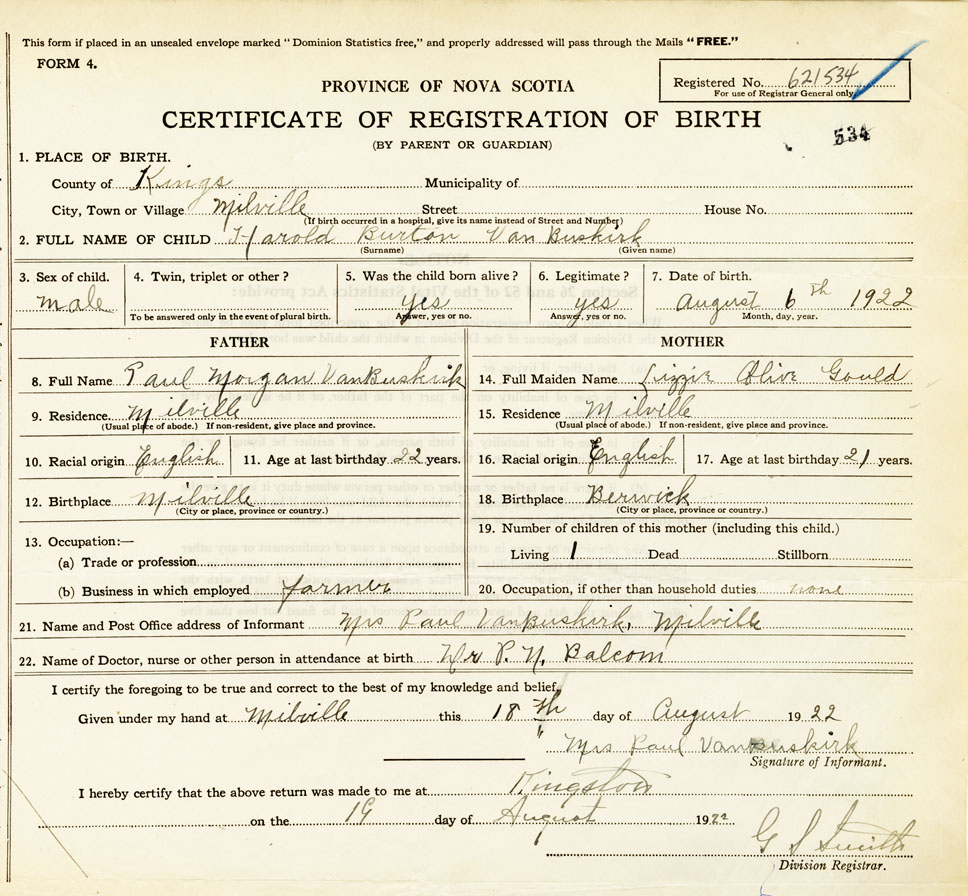 This form if placed in an unsealed envelope marked "Dominion Statistics free," and properly addressed will pass through the Mails "FREE."
FORM 4.
Registered No. 621534
For use of Registrar General only
PROVINCE OF NOVA SCOTIA
CERTIFICATE OF REGISTRATION OF BIRTH
534
(BY PARENT OR GUARDIAN)
1. PLACE OF BIRTH.
County of Kings Municipality of
City, Town or Village Milville Street House No.
(If birth occurred in a hospital, give its name instead of Street and Number)
2. FULL NAME OF CHILD Harold Burton Van Buskirk
(Surname) (Given name)
3. Sex of child. 4. Twin, triplet or other? 5. Was the child born alive? 6. Legitimate? 7. Date of birth.
male yes yes August 6th 1922
To be answered only in the event of plural birth. Answer, yes or no. Answer, yes or no. Month, day, year.
FATHER MOTHER
8. Full Name Paul Morgan VanBuskirk 14. Full Maiden Name Lizzie Olive Gould
9. Residence. Milville 15. Residence Milville
(Usual place of abode.) If non-resident, give place and province. (Usual place of abode.) If non-resident, give place and province.
10. Racial origin English 11. Age at last birthday 22 years. 16. Racial origin English 17. Age at last birthday 21 years.
12. Birthplace Milville 18. Birthplace Berwick
(City or place, province or country.) (City or place, province or country.)
13. Occupation:— 19. Number of children of this mother (including this child.)
(a) Trade or profession Living 1 Dead Stillborn
(b) Business in which employed farmer 20. Occupation, if other than household duties none
21. Name and Post Office address of Informant Mrs Paul VanBuskirk, Milville
22. Name of Doctor, nurse or other person in attendance at birth Dr P. N. Balcom
I certify the foregoing to be true and correct to the best of my knowledge and belief,
Given under my hand at Milville this 18th day of August 1922
" Mrs Paul VanBuskirk
Signature of Informant.
I hereby certify that the above return was made to me at Kingston
on the 19 day of August 1922
G S Smith
Division Registrar.